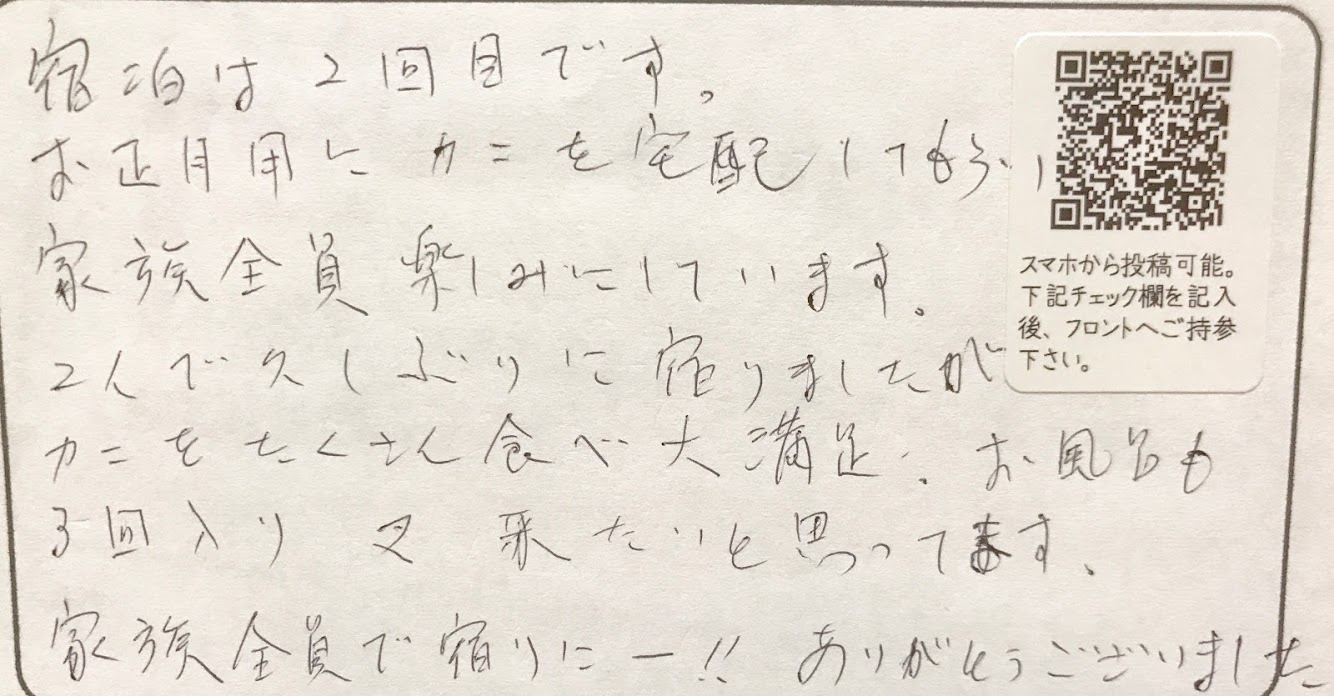 宿泊は2回目です。
お正月用に カニを宅配してもらい
家族全員 楽しみにしています。
2人で久しぶりに 宿りましたが
カニをたくさん食べ大満足. お風呂も
3回入り 又 来たいと思ってます、
家族全員で宿りにー!! ありがとうございました
スマホから投稿可能。
下記チェック欄を記入
後、フロントへご持参
下さい。